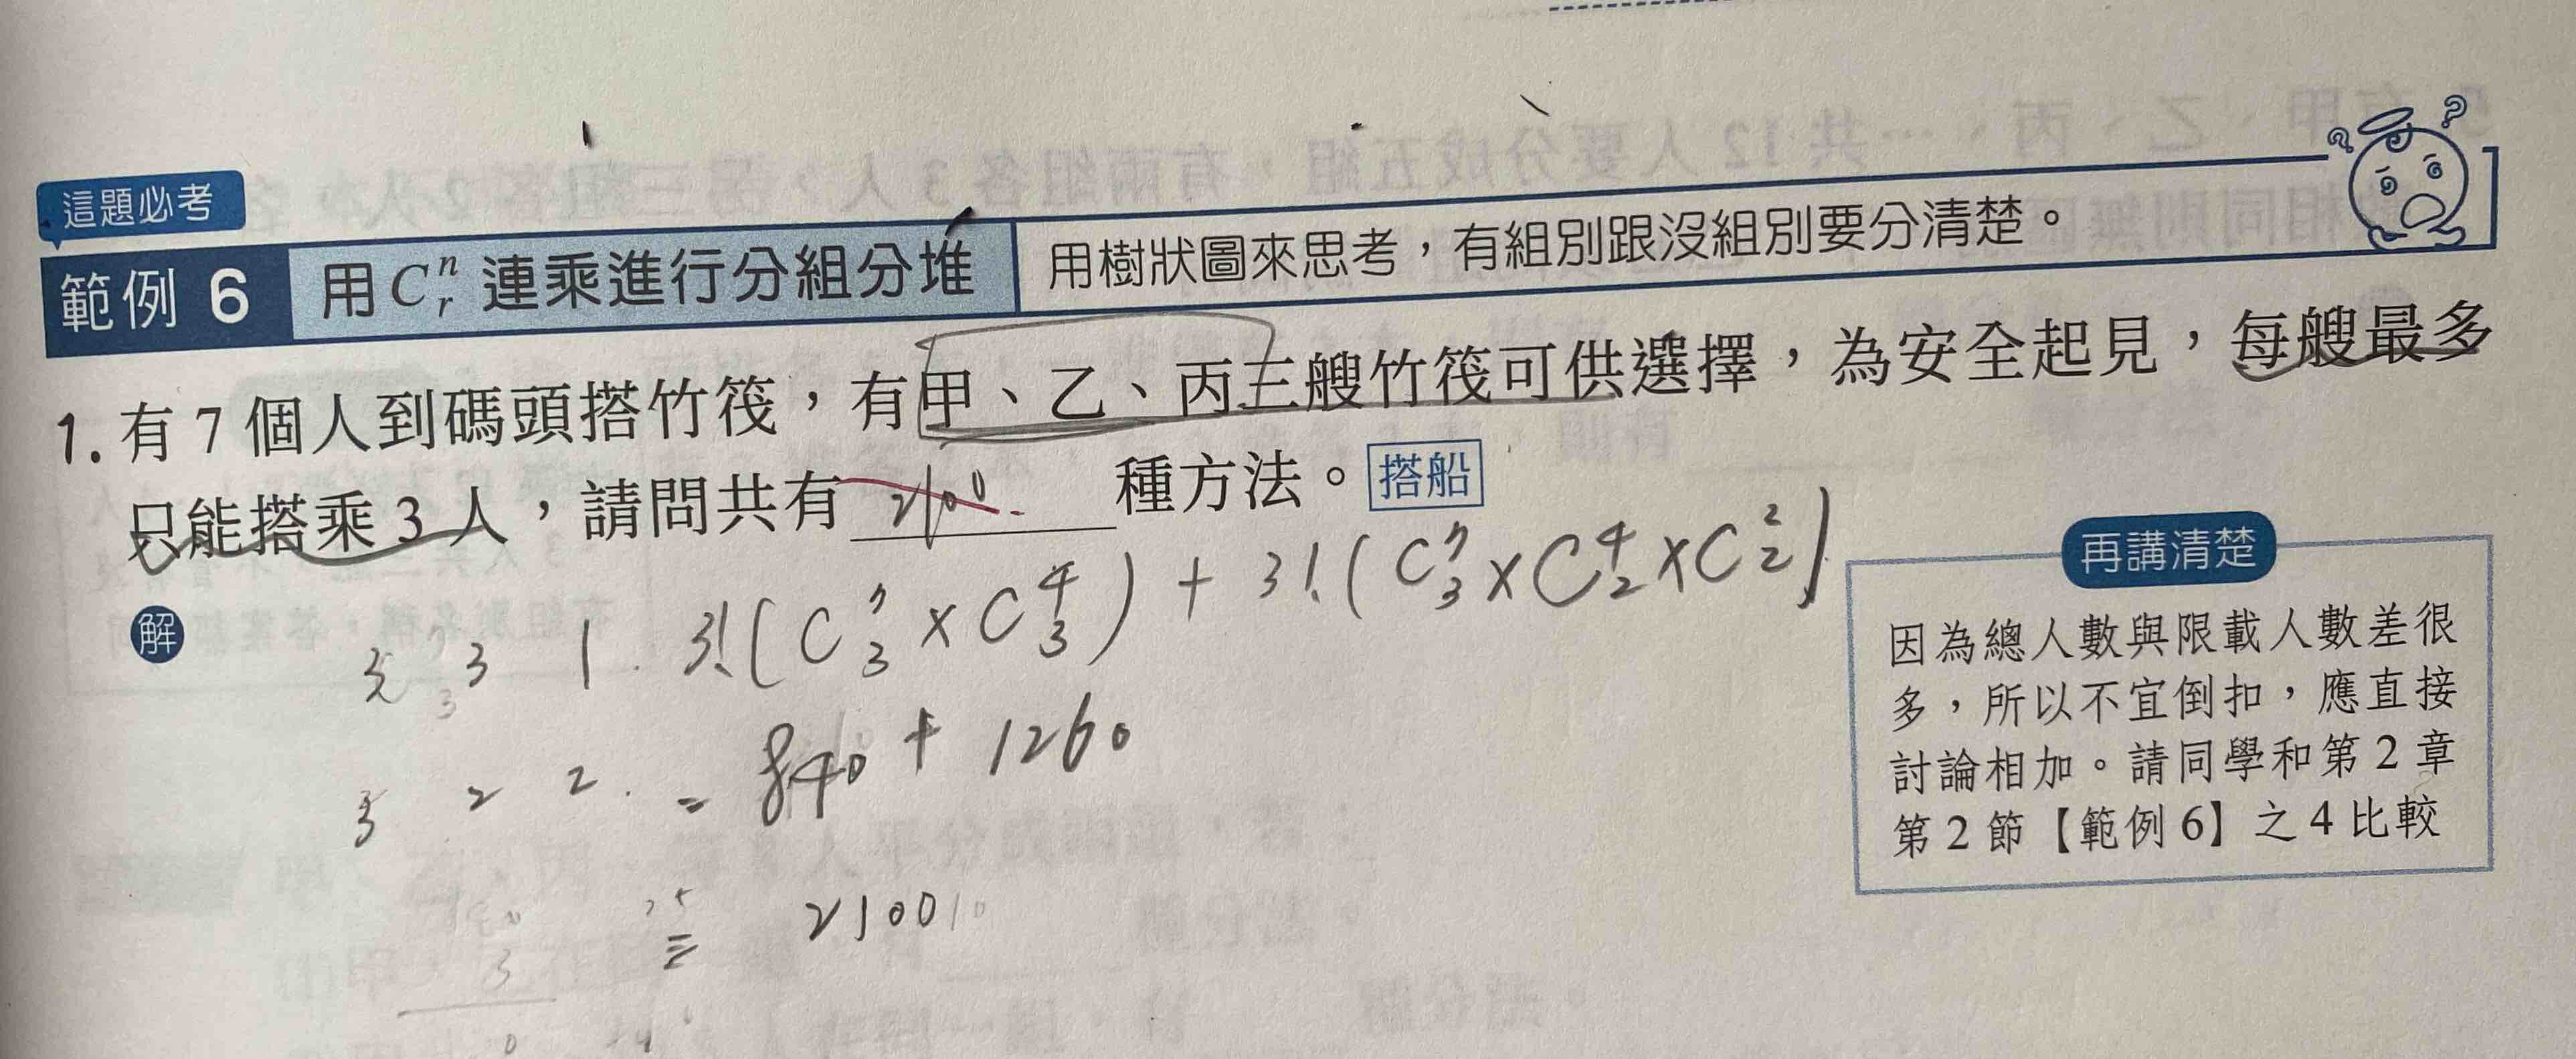 這題必考
範例 6 用 C^n_r 連乘進行分組分堆 用樹狀圖來思考，有組別跟沒組別要分清楚。
1. 有 7 個人到碼頭搭竹筏，有甲、乙、丙三艘竹筏可供選擇，為安全起見，每艘最多
只能搭乘 3 人，請問共有 2100 種方法。 搭船
解
3 3 1 . 3!(C^7_3 × C^4_3) + 3!(C^7_3 × C^4_2 × C^2_2)
3 2 2 . = 840 + 1260
= 2100
再講清楚
因為總人數與限載人數差很
多，所以不宜倒扣，應直接
討論相加。請同學和第 2 章
第 2 節【範例 6】之 4 比較